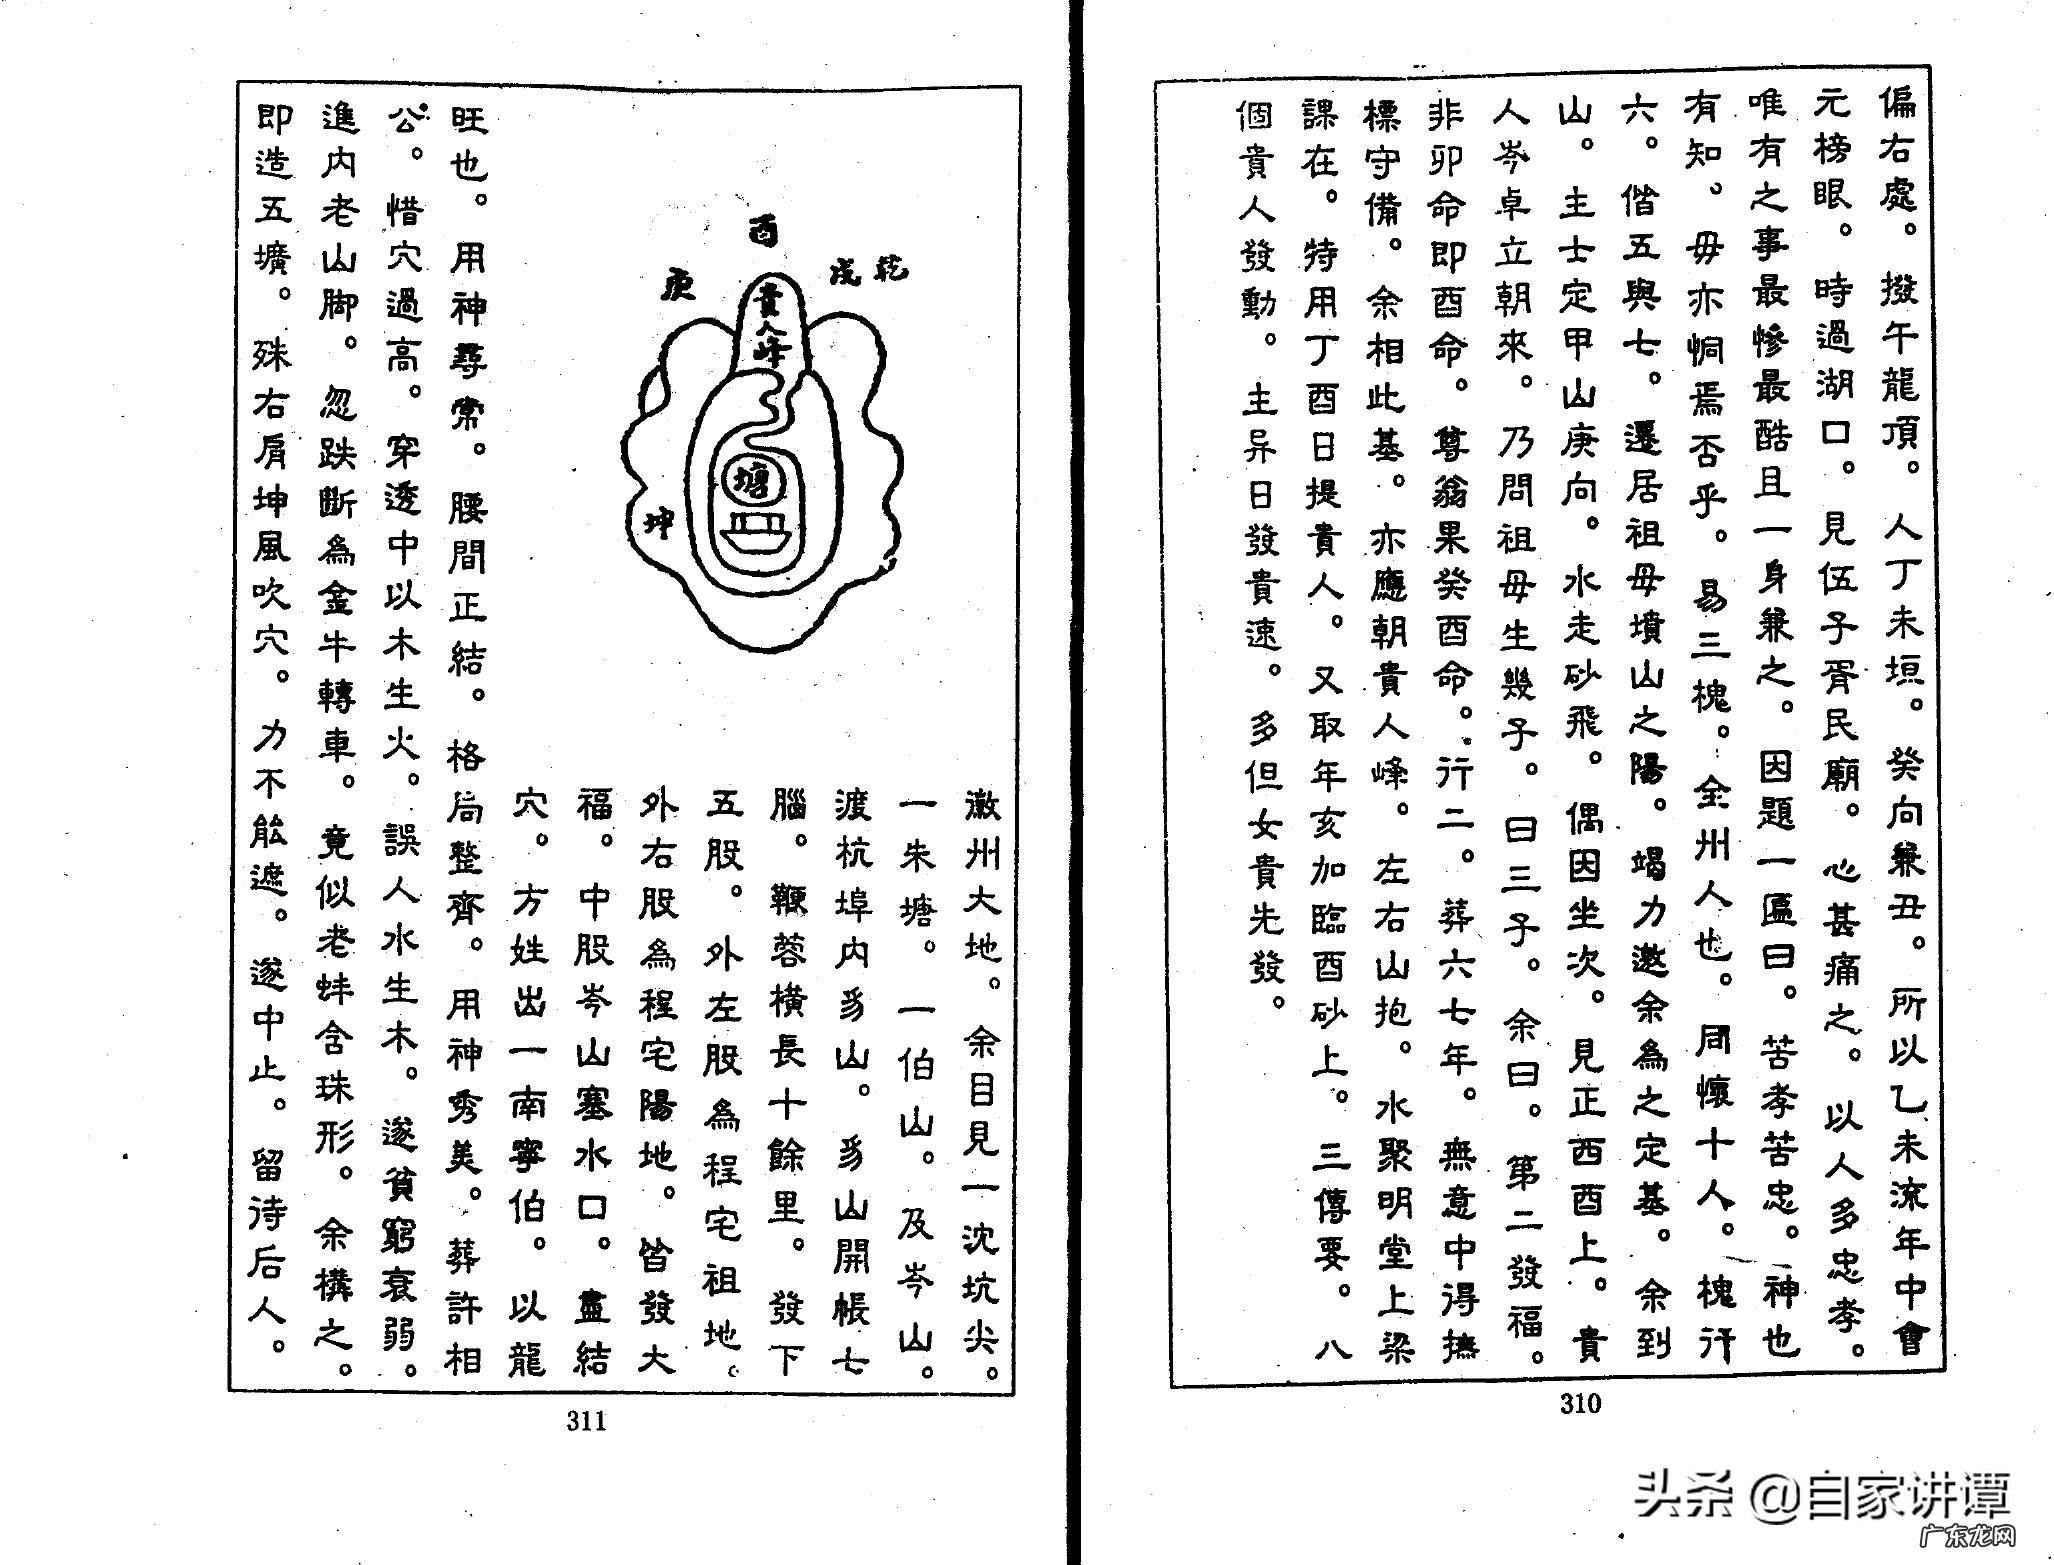 偏右處。撥午龍頂。人丁未垣。癸向兼丑。所以乙未流年中會
元榜眼。時過湖口。見伍子胥民廟。心甚痛之。以人多忠孝。
唯有之事最慘最酷且一身兼之。因題一匾曰。苦孝苦忠。神也
有知、毋亦恫焉否乎。易三槐。全州人也。同懷十人。槐行
六。偕五與七。遷居祖母墳山之陽。竭力邀余為之定基。余到
山。主士定甲山庚向。水走砂飛。偶因坐次。見正酉酉上。貴
人岑卓立朝來。乃問祖母生幾子。曰三子。余曰。第二發福。
非卯命即酉命。尊翁果癸酉命。行二。葬六七年。無意中得撫
標守備。余相此基。亦應朝貴人峰。左右山抱。水聚明堂上梁
課在。特用丁酉日提貴人。又取年亥加臨酉砂上。三傳要。八
個貴人發動。主异日發貴速。多但女貴先發。
310
酉
庚
戌乾
貴人峰
塘
坤
徽州大地。余目見一沈坑尖。
一朱塘。一伯山。及岑山。
渡杭埠内爲山。爲山開帳七
腦。鞭蓉橫長十餘里。發下
五股。外左股為程宅祖地。
外右股為程宅陽地。皆發大
福。中股岑山塞水口。盡結
穴。方姓出一南寧伯。以龍
旺也。用神尋常。腰間正結。格局整齊。用神秀美。葬許相
公。惜穴過高。穿透中以木生火。誤人水生木。遂貧窮衰弱。
進内老山脚。忽跌斷為金牛轉車。竟似老蚌含珠形。余構之。
即造五壙。殊右肩坤風吹穴。力不能遮。遂中止。留待后人。
311
头条 @自家讲谭
广东龙网